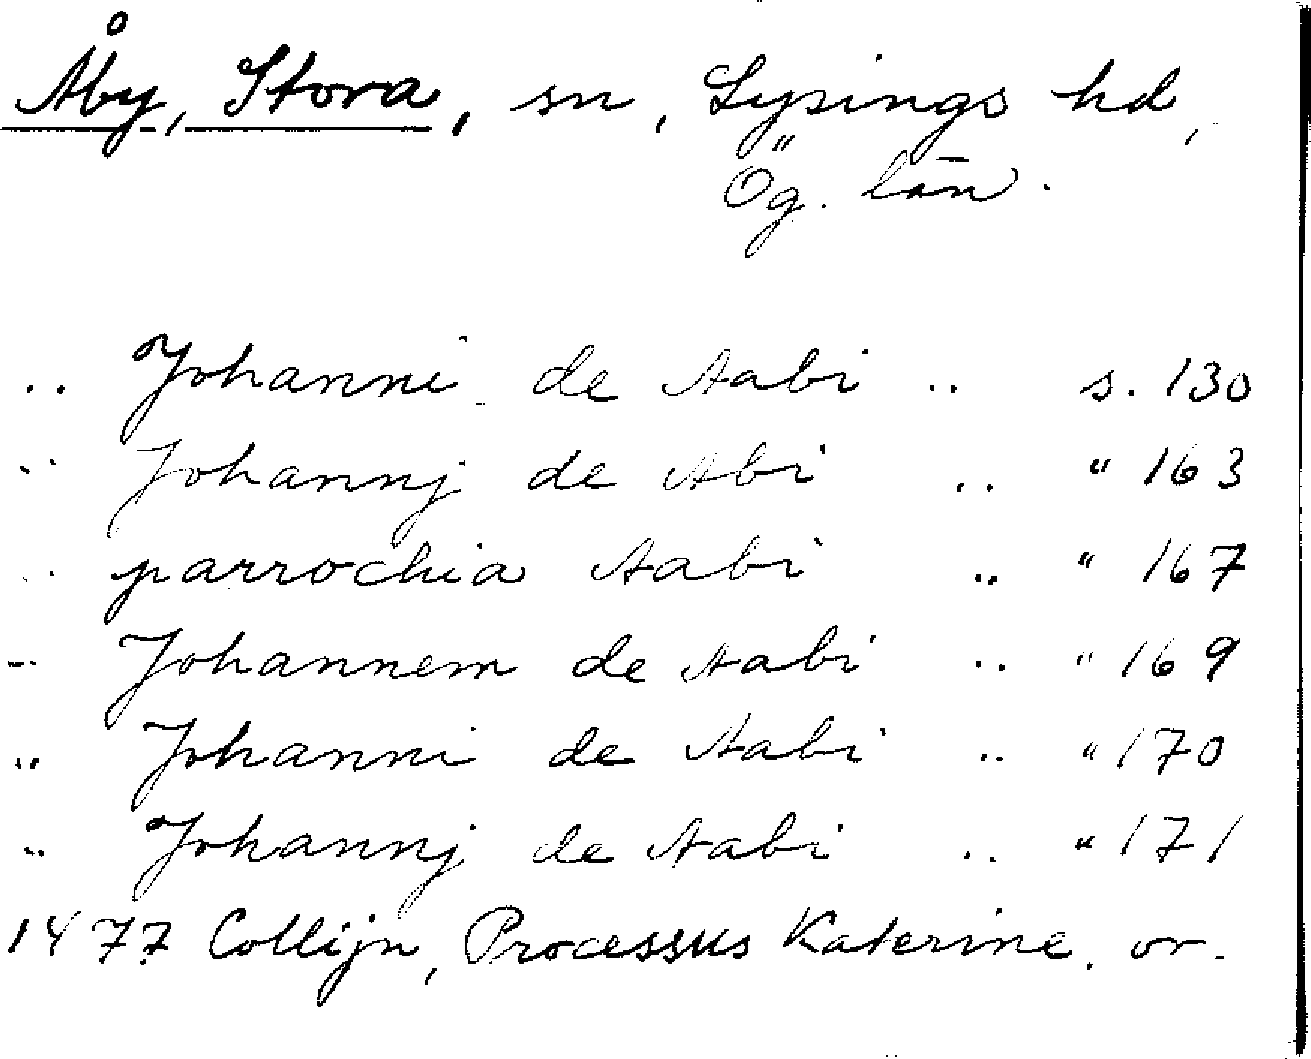 Åby, Stora, sn, Lysings hd,
Ög. län.
.. Johanni de Aabi .. s. 130
.. Johannj de Abi .. " 163
.. parrochia Aabi .. " 167
.. Johannem de Aabi .. " 169
.. Johanni de Aabi .. " 170
.. Johannj de Aabi .. " 171
1477 Collijn, Processus Katerine. or.